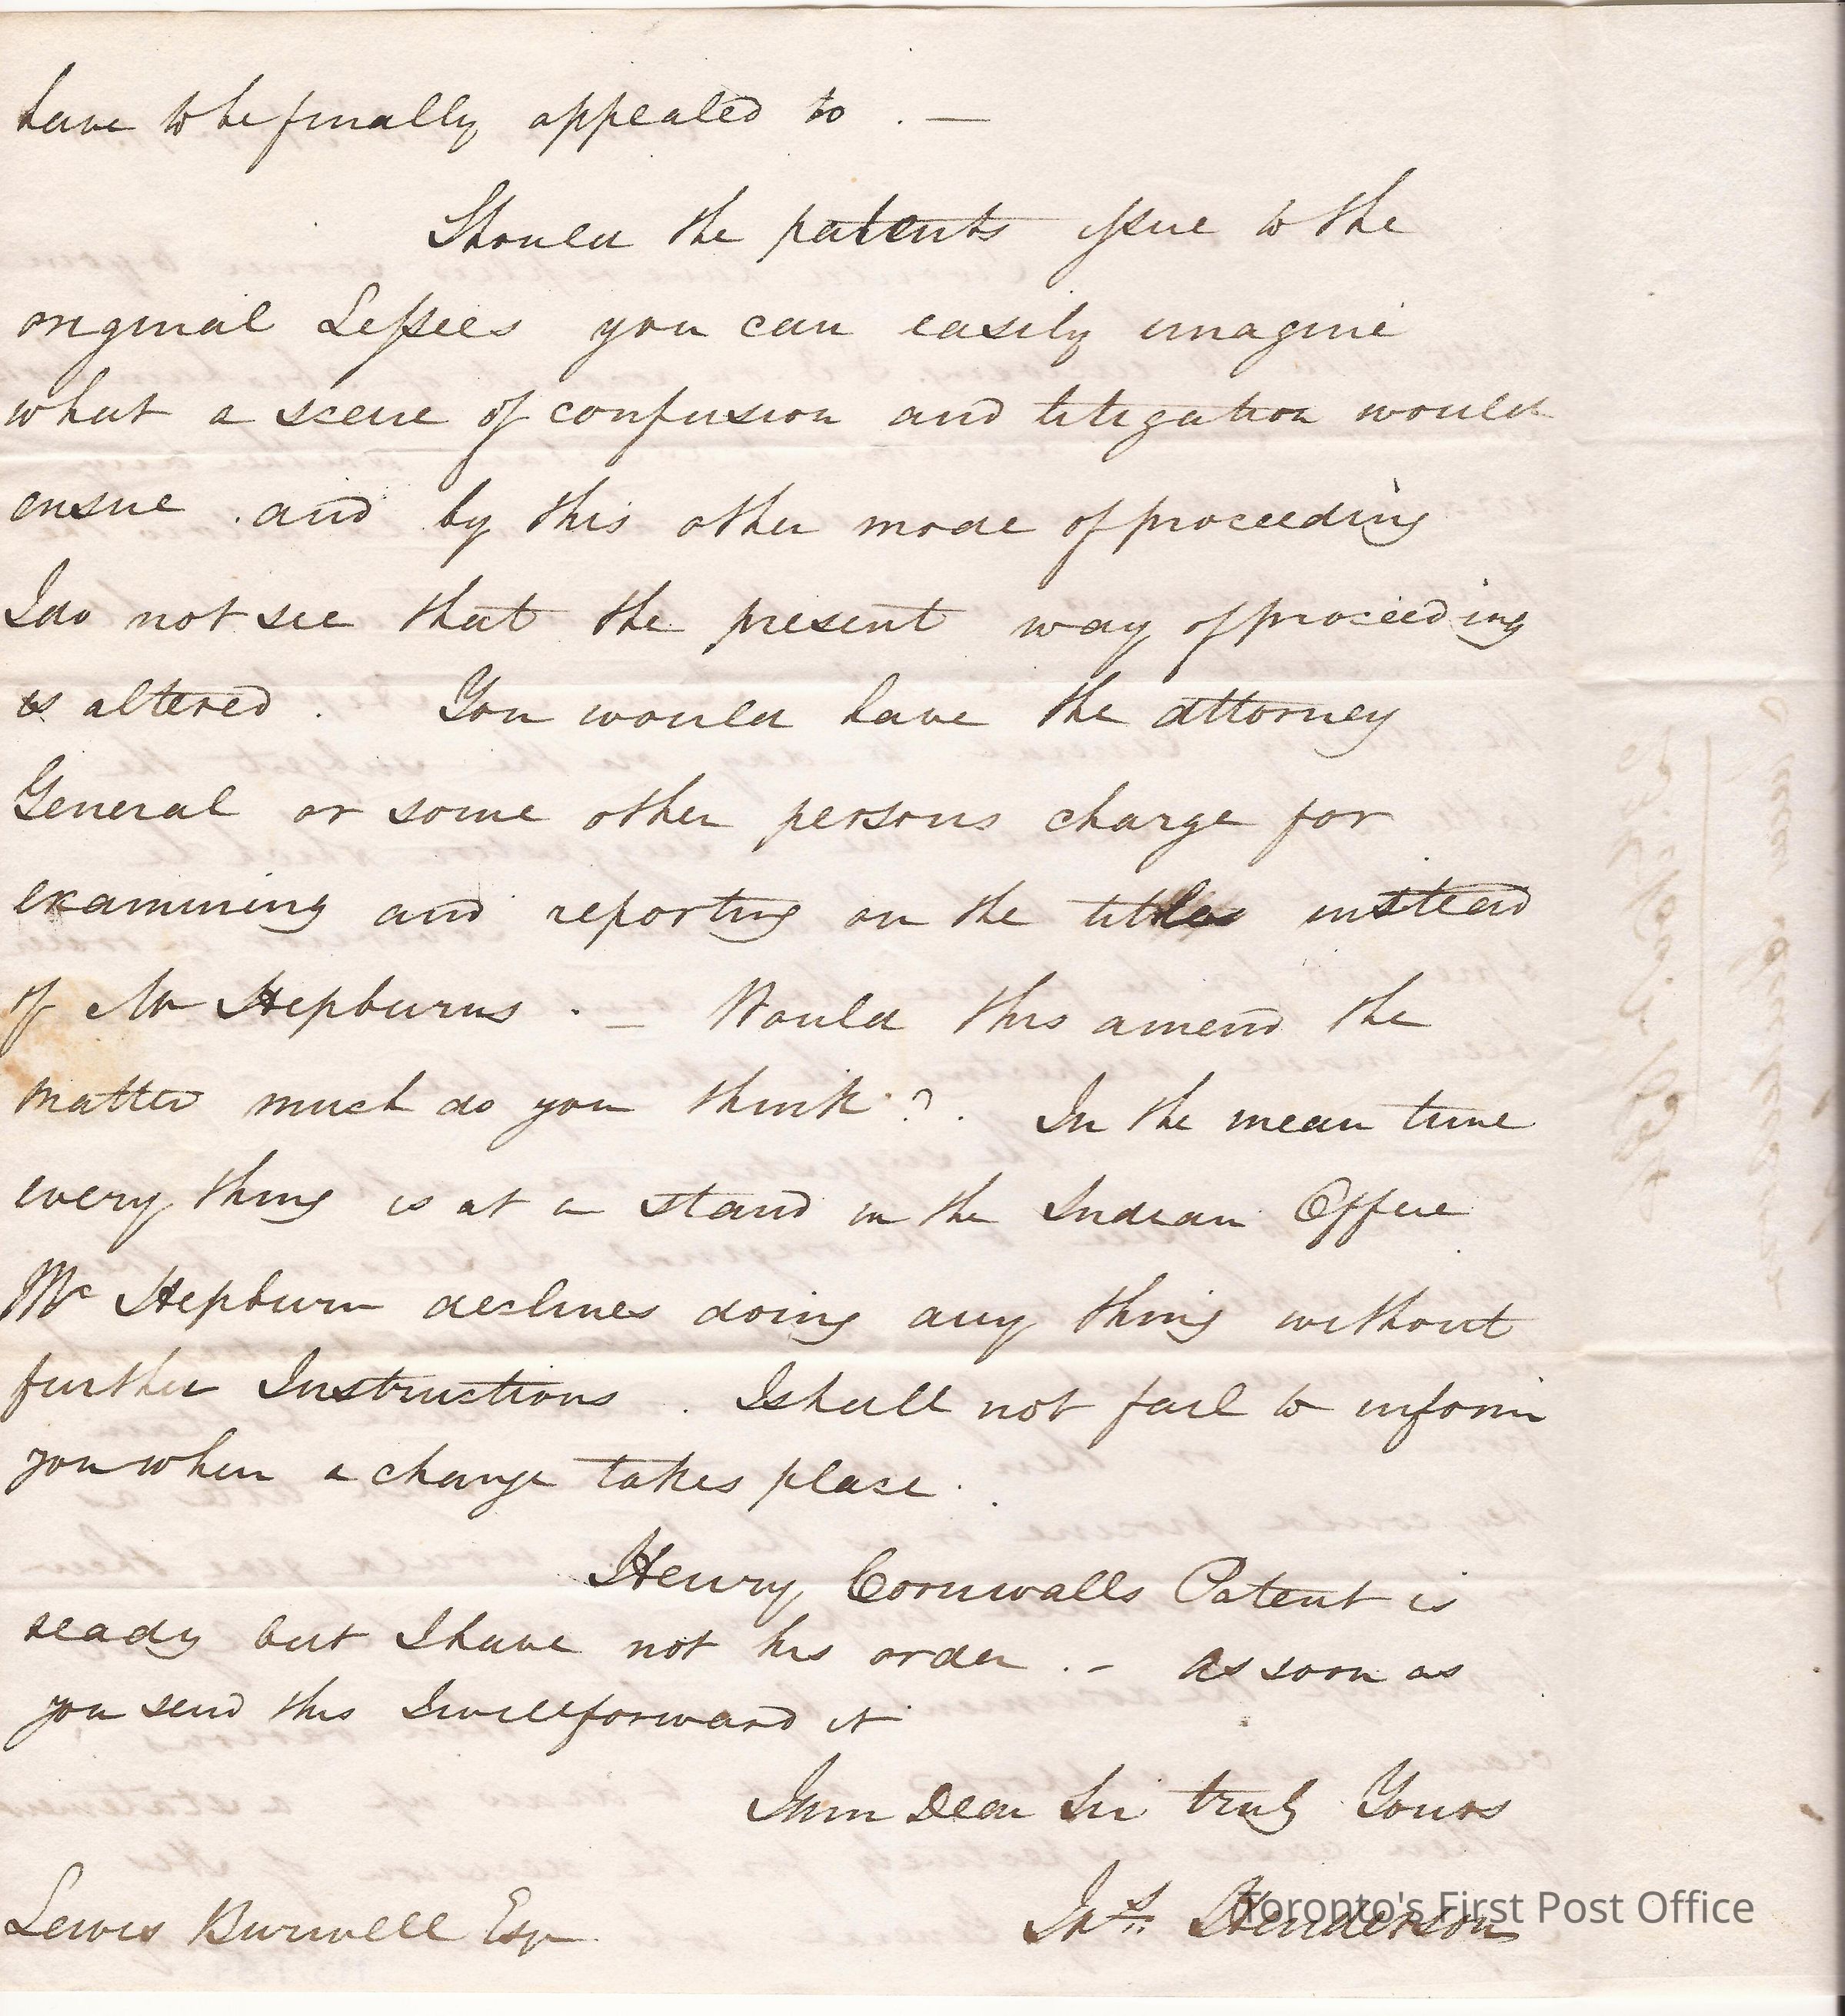 have to be finally appealed to . —
Should the patents issue to the
original Lessees you can easily imagine
what a scene of confusion and litigation would
ensue . and by this other mode of proceeding
I do not see that the present way of proceeding
is altered . You would have the attorney
General or some other persons charge for
examining and reporting on the titles instead
of Mr Hepburns . — Would this amend the
matter much do you think ? . In the mean time
every thing is at a stand in the Indian Office
Mr Hepburn declines doing any thing without
further Instructions . I shall not fail to inform
you when a change takes place .
Henry Cornwalls Patent is
ready but I have not his order . – As soon as
you send this I will forward it
I am Dear Sir truly Yours
Henderson
Lewis Burwell Esqr
Toronto's First Post Office